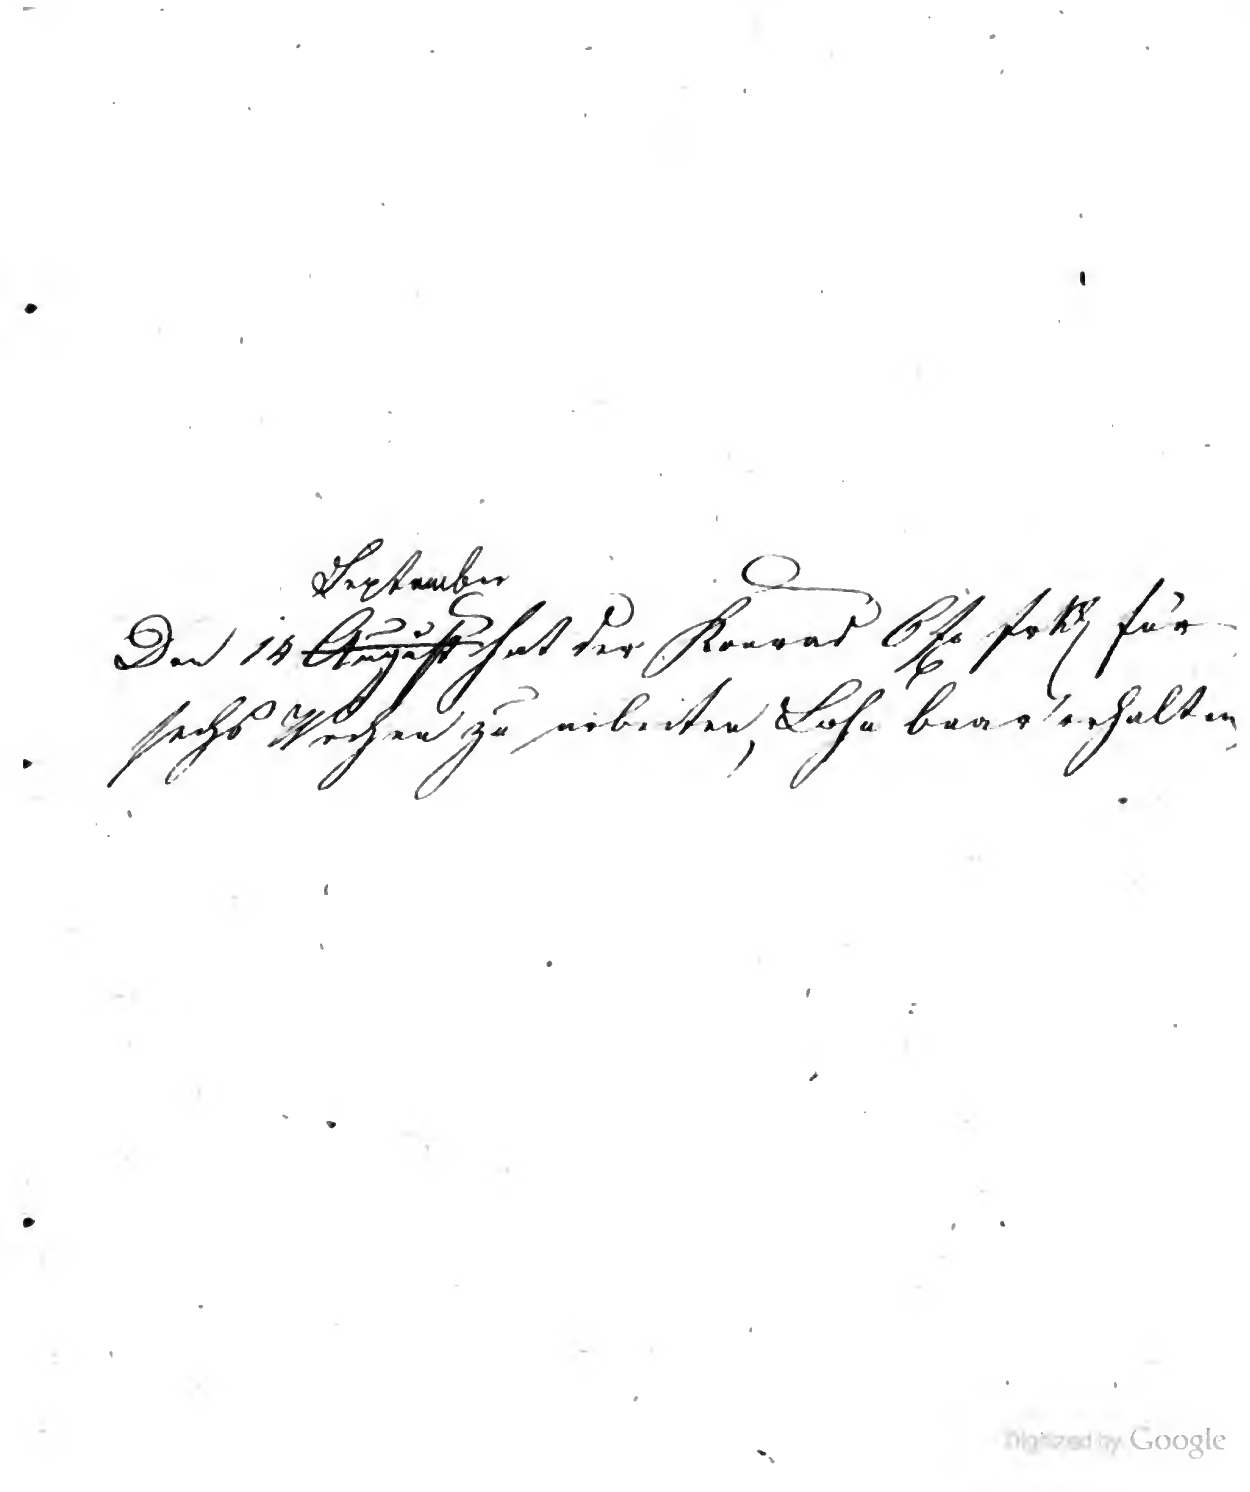 September
Den 14 August hat der Konrad 6 für
sechs Wochen zu arbeiten, Lohn baar erhalten,
Digitized by Google